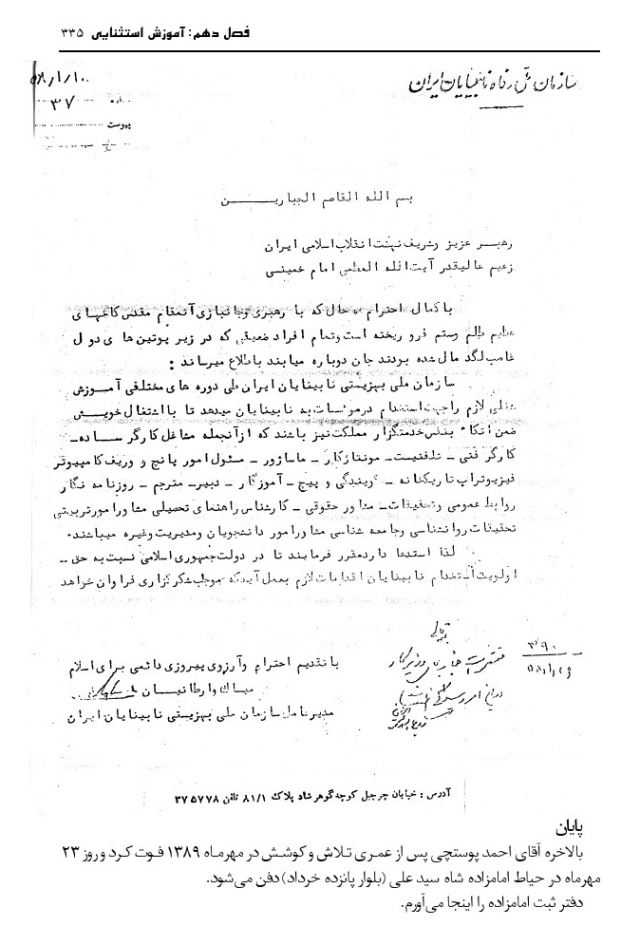 فصل دهم: آموزش استثنایی ۳۳۵
سازمان ملی رفاه نابینایان ایران
۵۸/۱/۱۰
شماره ۳۷
پیوست
بسم الله القاصم الجبارین
رهبر عزیز و شریف نهضت انقلاب اسلامی ایران
زعیم عالیقدر آیت الله العظمی امام خمینی
با کمال احترام حال که با رهبری و جانبازی آنمقام مقدس کاخهای
عظیم ظلم وستم فرو ریخته است وتمام افراد ضعیفی که در زیر پوتین های دول
غاصب لگد مال شده بودند جان دوباره مییابند باطلاع میرساند :
سازمان ملی بهزیستی نابینایان ایران طی دوره های مختلفی آموزش
لازم را جهت استخدام در موسسات به نابینایان میدهد تا با اشتغال خویش
ضمن اتکاء خدمتگزار مملکت نیز باشند که از آنجمله مشاغل کارگر ساده -
کارگر فنی - تلفنیست - مونتاژکار - ماساژور - مسئول امور پانچ و وریف کامپیوتر
فیزیوتراپ تاریکخانه - گویندگی و پیج - آموزگار - دبیر - مترجم - روزنامه نگار
روابط عمومی وتحقیقات - مشاور حقوقی - کارشناس راهنمای تحصیلی مشاور امور تربیتی
تحقیقات روانشناسی وجامعه شناسی مشاور امور دانشجویان ومدیریت وغیره میباشند.
لذا استدعا دارد مقرر فرمایند تا در دولت جمهوری اسلامی نسبت به حق -
اولویت استخدام نابینایان اقدامات لازم بعمل آید که موجب شکرگزاری فراوان خواهد
با تقدیم احترام و آرزوی پیروزی دائمی برای اسلام
میساک وارطانیان
مدیرعامل سازمان ملی بهزیستی نابینایان ایران
آدرس : خیابان چرچیل کوچه گوهرشاد پلاک ۸۱/۱ تلفن ۳۷۵۷۷۸
پایان
بالاخره آقای احمد پوستچی پس از عمری تلاش و کوشش در مهرماه ۱۳۸۹ فوت کرد و روز ۲۳
مهرماه در حیاط امامزاده شاه سید علی (بلوار پانزده خرداد) دفن می‌شود.
دفتر ثبت امامزاده را اینجا می‌آورم.